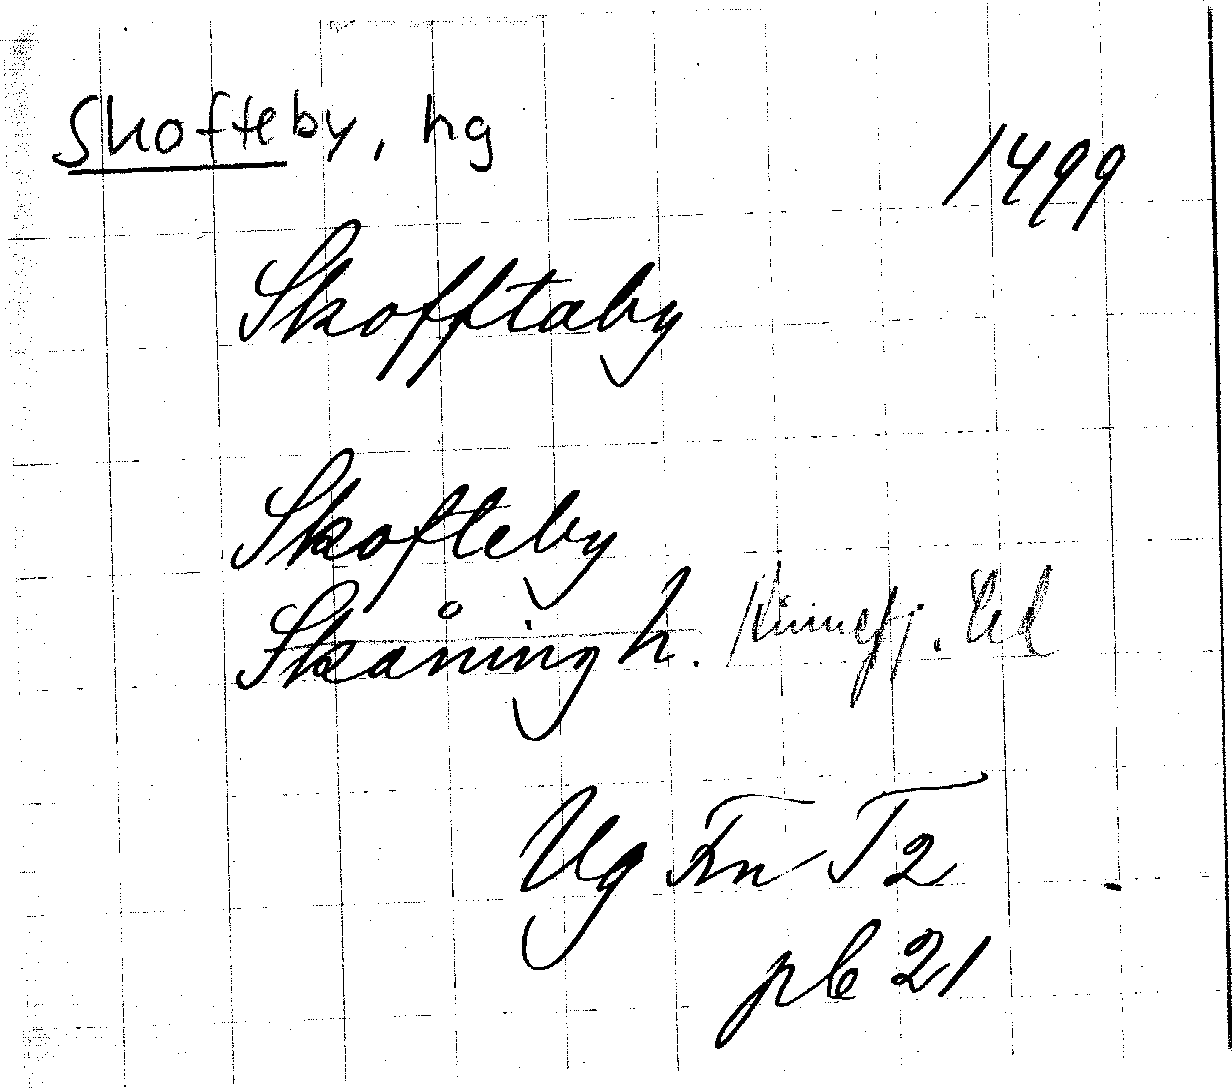 Skofteby, hg
1499
Skofftaby
Skofteby
Skåning h. Kinnefj. hd
Ug Fn T2
pb 21